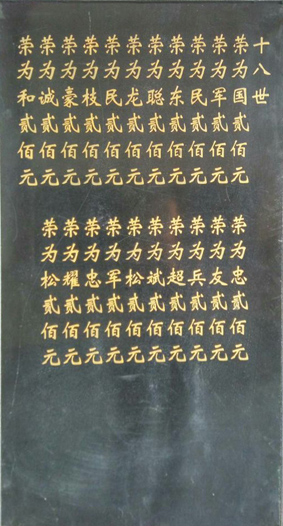 十八世
荣为国贰佰元
荣为军贰佰元
荣为民贰佰元
荣为东贰佰元
荣为聪贰佰元
荣为龙贰佰元
荣为民贰佰元
荣为枝贰佰元
荣为豪贰佰元
荣为诚贰佰元
荣为和贰佰元
荣为忠贰佰元
荣为友贰佰元
荣为兵贰佰元
荣为超贰佰元
荣为斌贰佰元
荣为松贰佰元
荣为军贰佰元
荣为忠贰佰元
荣为耀贰佰元
荣为松贰佰元